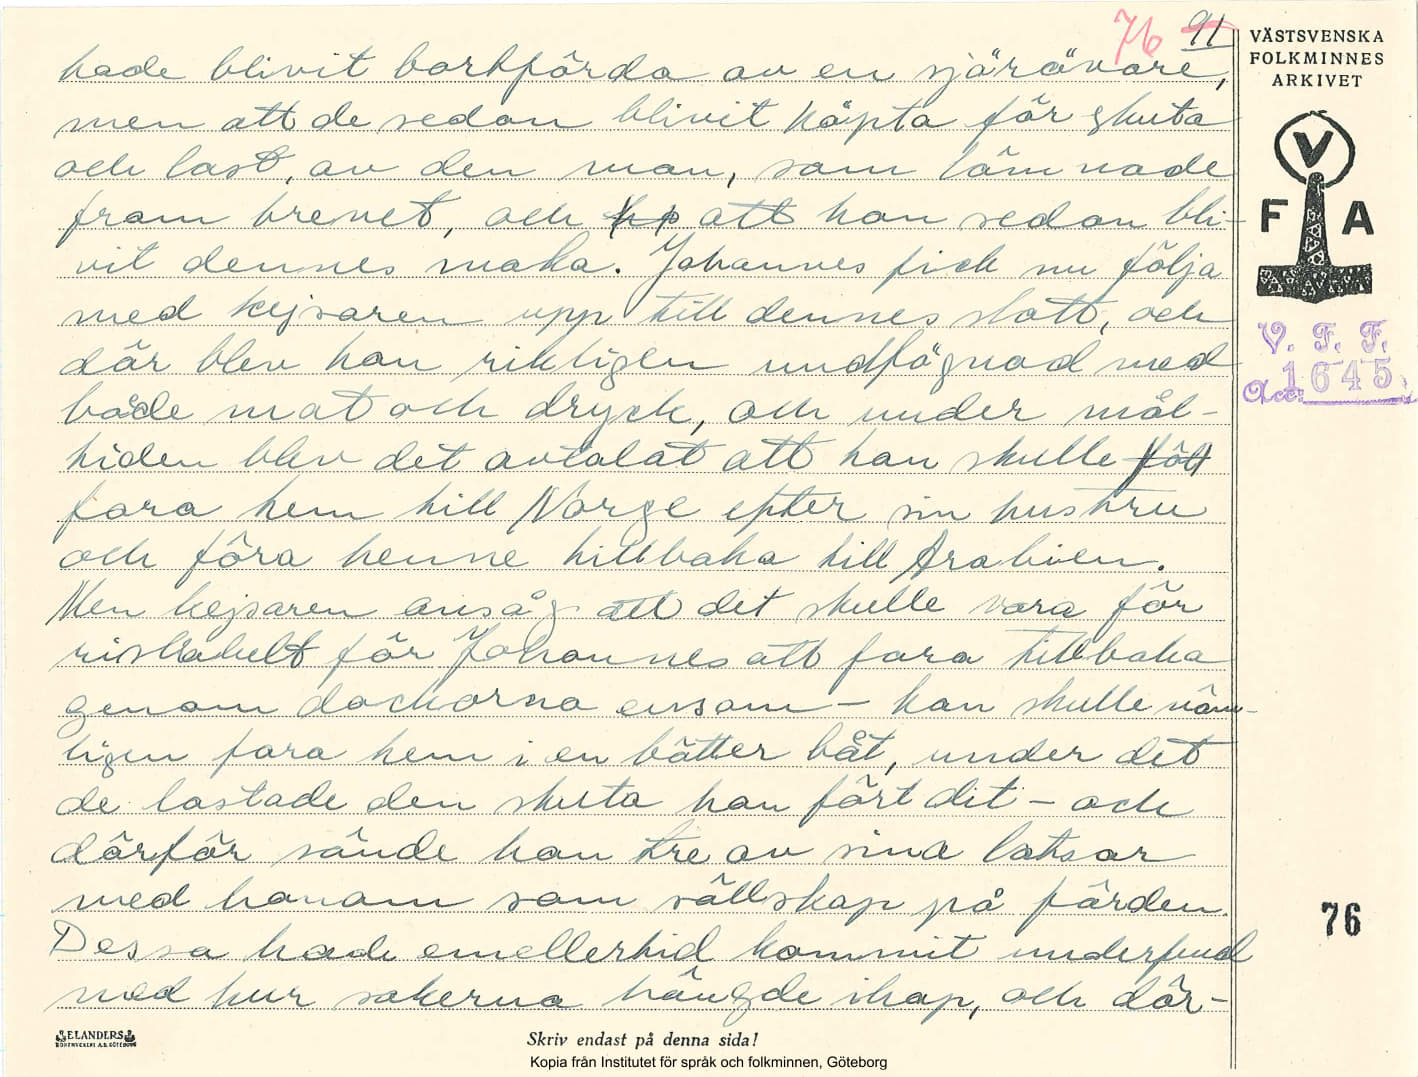 76 91
VÄSTSVENSKA
FOLKMINNES
ARKIVET
hade blivit bortförda av en sjörövare,
men att de sedan blivit köpta för skuta
och last, av den man, som lämnade
fram brevet, och att han sedan bli-
vit dennes maka. Johannes fick nu följa
med kejsaren upp till dennes slott, och
där blev han riktigen undfögnad med
både mat och dryck, och under mål-
tiden blev det avtalat att han skulle
fara hem till Norge efter sin hustru
och föra henne tillbaka till Arabien.
Men kejsaren ansåg att det skulle vara för
riskabelt för Johannes att fara tillbaka
genom dockorna ensam – han skulle näm-
ligen fara hem i en bätter båt, under det
de lastade den skuta han fört dit – och
därför sände han tre av sina lotsar
med honom som sällskap på färden.
Dessa hade emellertid kommit underfund
med hur sakerna hängde ihop, och där-
V
F A
V. F. F.
Acc: 1645
76
ELANDERS
BOKTRYCKERI A.B. GÖTEBORG
Skriv endast på denna sida!
Kopia från Institutet för språk och folkminnen, Göteborg